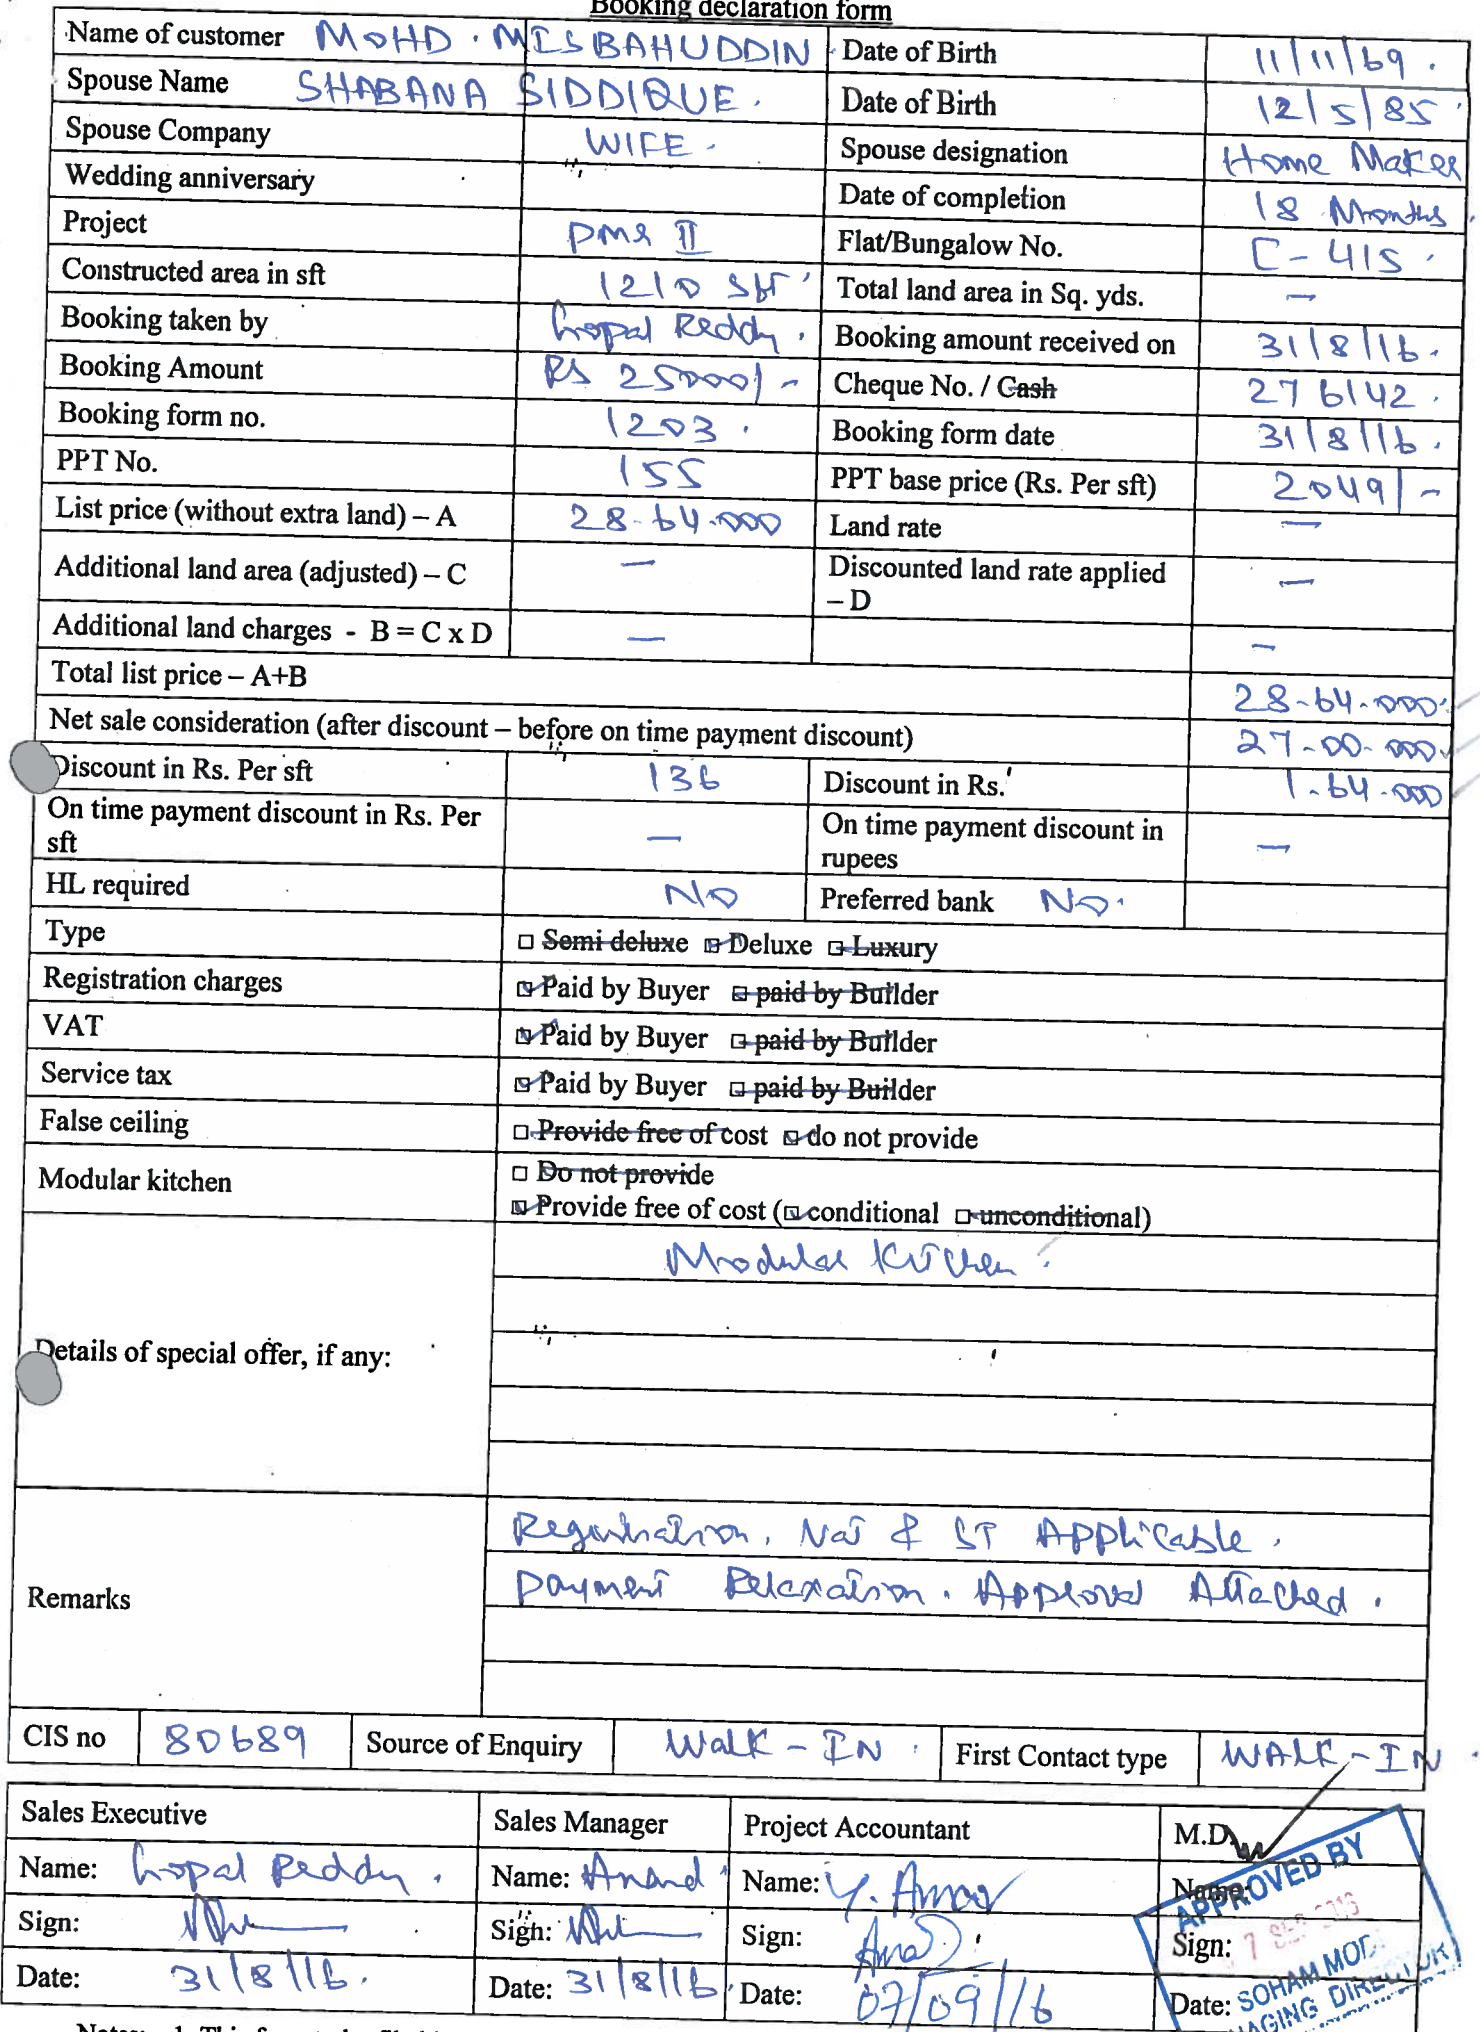 Booking declaration form
Name of customer MOHD. MISBAHUDDIN. Date of Birth 11/11/69.
Spouse Name SHABANA SIDDIQUE. Date of Birth 12/5/85
Spouse Company WIFE. Spouse designation Home Maker
Wedding anniversary Date of completion 18 Months.
Project PMR II Flat/Bungalow No. C-415.
Constructed area in sft 1210 sft Total land area in Sq. yds. —
Booking taken by Gopal Reddy. Booking amount received on 31/8/16.
Booking Amount RS 25000/- Cheque No. / Cash 276142.
Booking form no. 1203. Booking form date 31/8/16.
PPT No. 155 PPT base price (Rs. Per sft) 2049/-
List price (without extra land) – A 28-64.000 Land rate —
Additional land area (adjusted) – C — Discounted land rate applied – D —
Additional land charges - B = C x D — —
Total list price – A+B 28-64.000
Net sale consideration (after discount – before on time payment discount) 27-00-000
Discount in Rs. Per sft 136 Discount in Rs. 1.64.000
On time payment discount in Rs. Per sft — On time payment discount in rupees —
HL required NO Preferred bank NO.
Type □ Semi deluxe ☑ Deluxe □ Luxury
Registration charges ☑ Paid by Buyer □ paid by Builder
VAT ☑ Paid by Buyer □ paid by Builder
Service tax ☑ Paid by Buyer □ paid by Builder
False ceiling □ Provide free of cost ☑ do not provide
Modular kitchen □ Do not provide
☑ Provide free of cost (☑ conditional □ unconditional)
Details of special offer, if any: Modular Kitchen.
Remarks Registration, Vat & ST Applicable.
Payment Relaxation. Approval Attached.
CIS no 80689 Source of Enquiry Walk-IN. First Contact type WALK-IN.
Sales Executive Sales Manager Project Accountant M.D.
Name: Gopal Reddy. Name: Anand Name: Y. Amar Name:
Sign: Sign: Sign: Sign:
Date: 31/8/16. Date: 31/8/16. Date: 07/09/16 Date:
APPROVED BY
SEP 2016
SOHAM MODI
MANAGING DIRECTOR